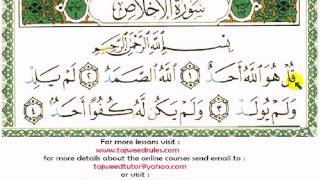 سُورَةُ الإِخْلَاصِ
بِسْمِ اللَّهِ الرَّحْمَٰنِ الرَّحِيمِ
قُلْ هُوَ اللَّهُ أَحَدٌ ١ اللَّهُ الصَّمَدُ ٢ لَمْ يَلِدْ
وَلَمْ يُولَدْ ٣ وَلَمْ يَكُن لَّهُ كُفُوًا أَحَدٌ ٤
For more lessons visit :
www.tajweedrules.com
for more details about the online courses send email to :
tajweedtutor@yahoo.com
or visit :